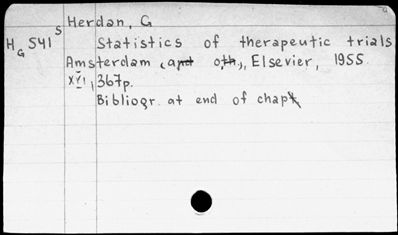 Herdan, G
HG 541 S
Statistics of therapeutic trials
Amsterdam (and oth.), Elsevier, 1955.
XVI, 367p.
Bibliogr. at end of chapt